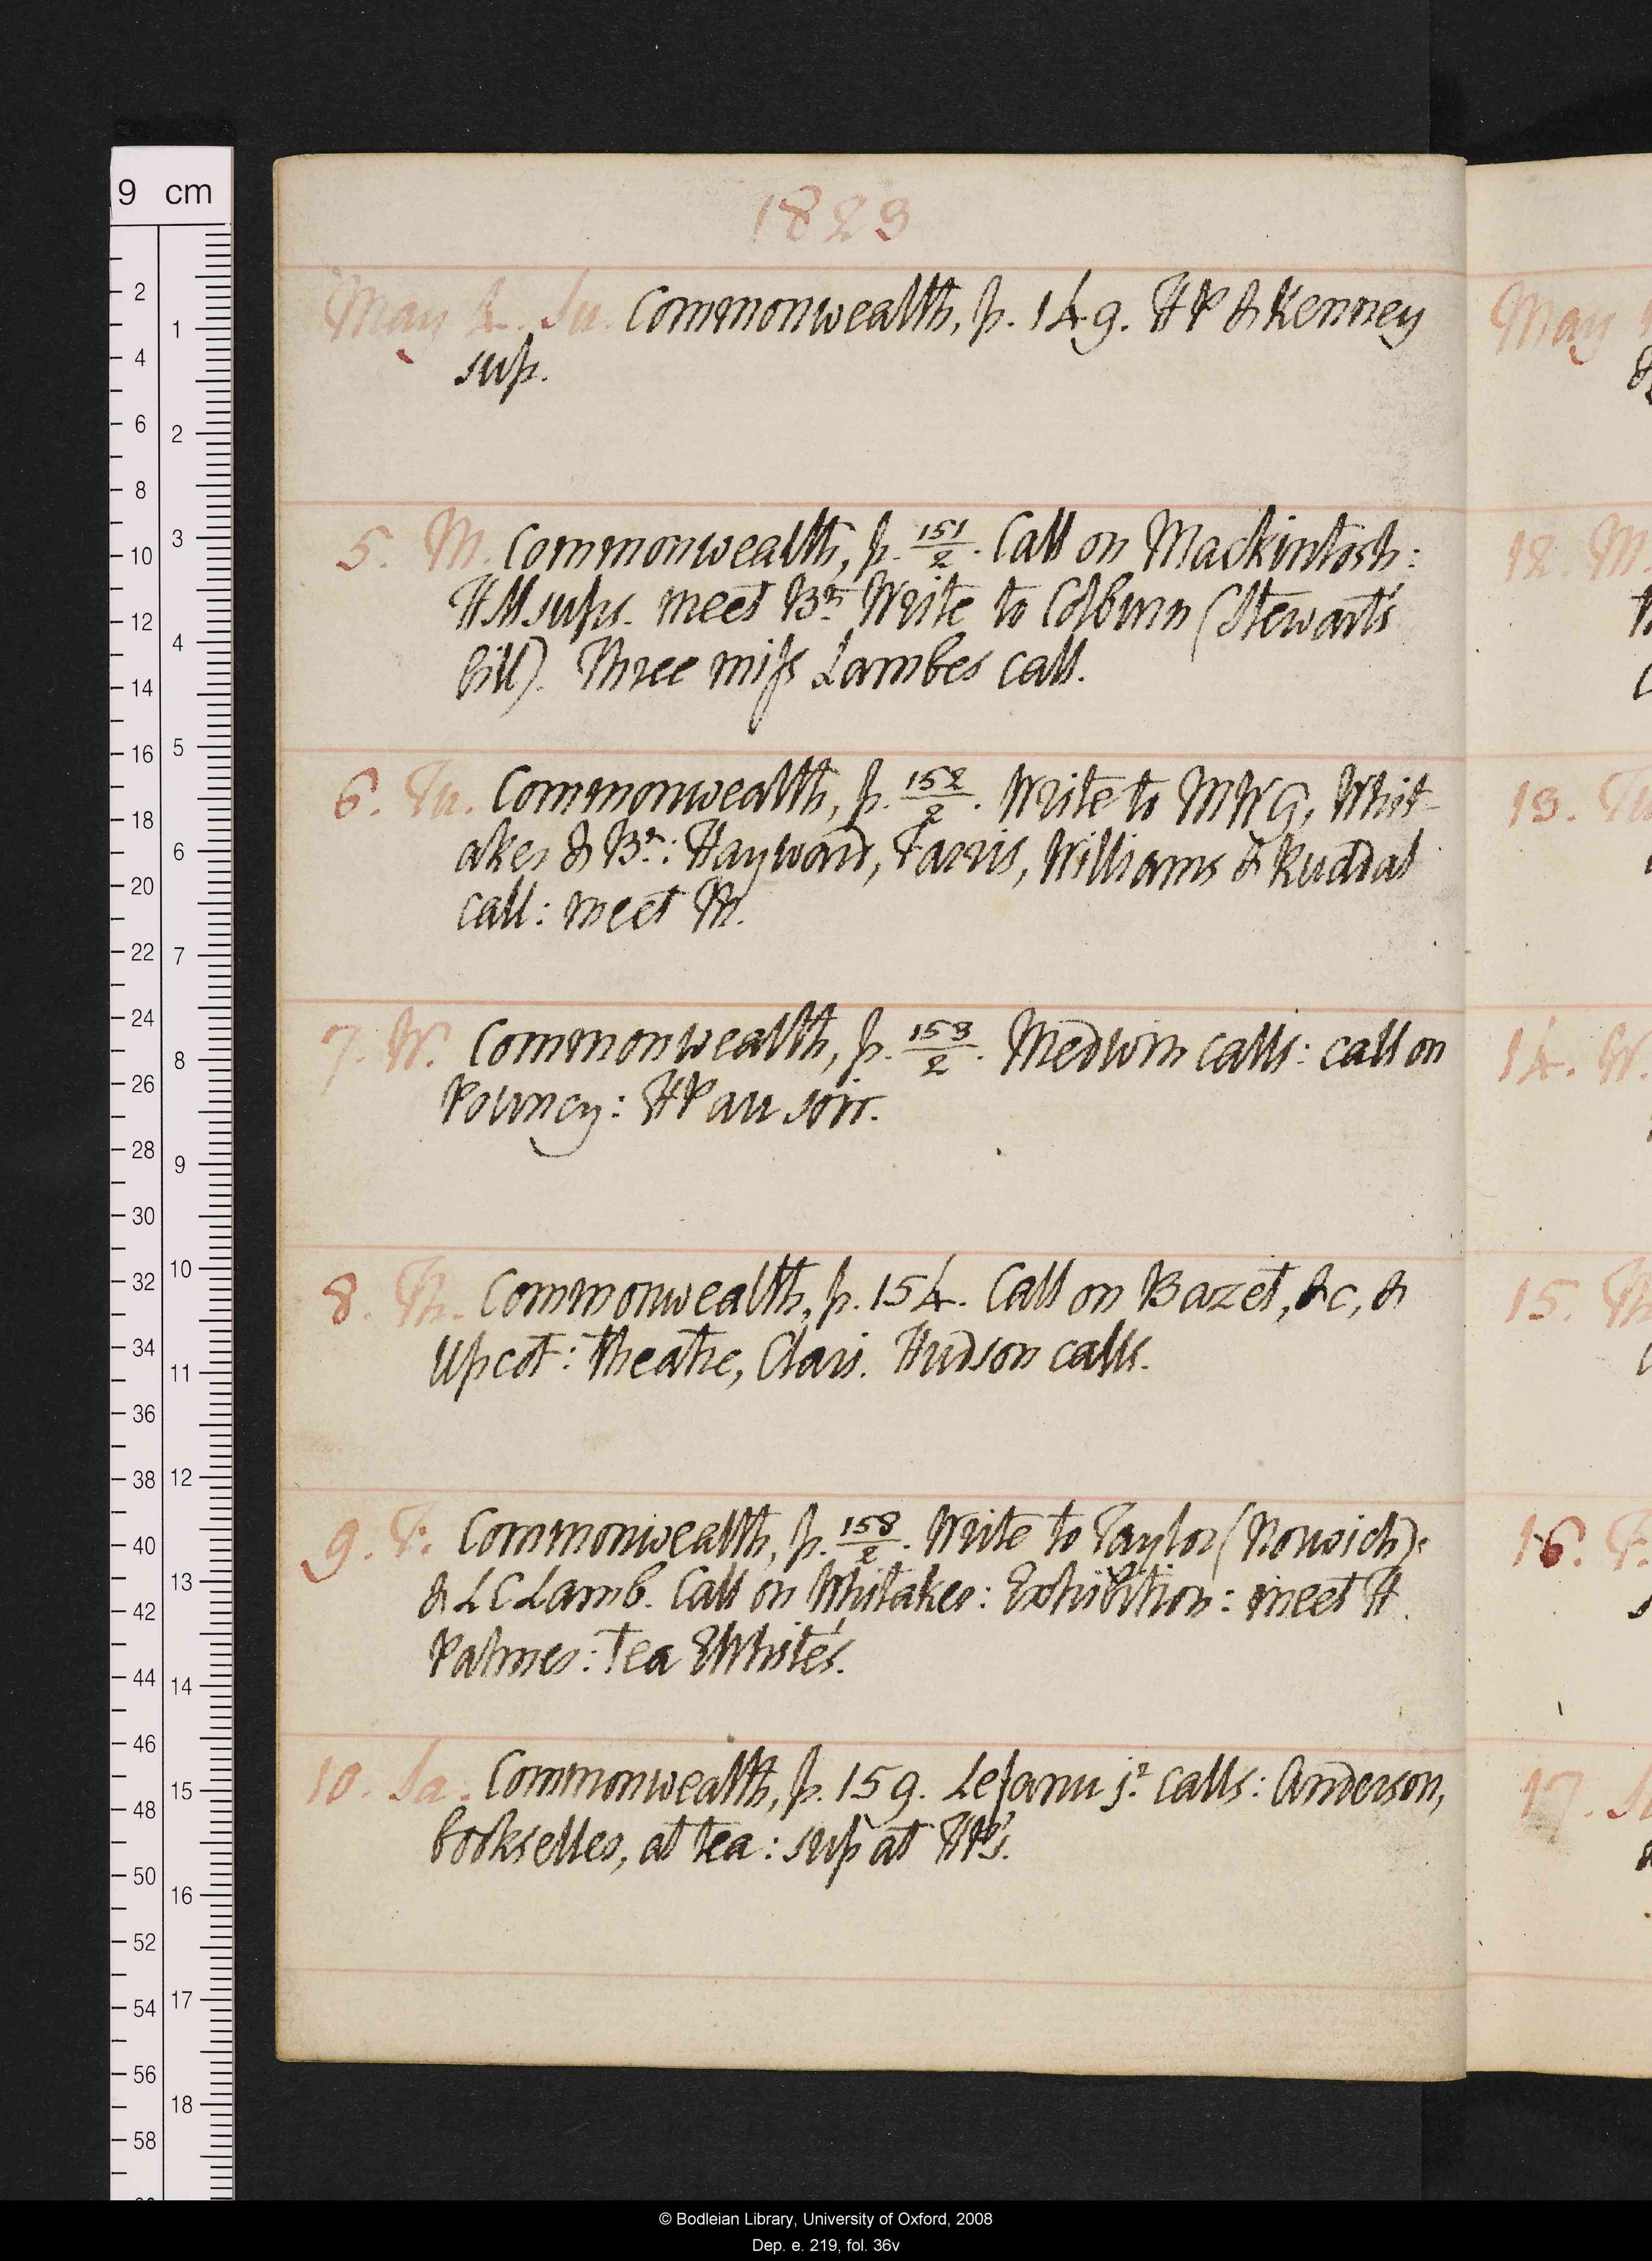 9 cm
1823
May 4. Su. Commonwealth, p. 149. HP & Kenney
sup.
5. M. Commonwealth, p. 151/2. Call on Mackintosh:
HM sups. meet Bn. Write to Colburn (Stewart's
bill). Three miſs Lambes call.
6. Tu. Commonwealth, p. 152/2. Write to MWG, Whit-
aker & Br.: Hayward, Farris, Williams & Ruddal
call: meet M.
7. W. Commonwealth, p. 153/2. Medwin calls: call on
Pouncy: HP au soir.
8. Th. Commonwealth, p. 154. Call on Bazet, &c, &
Upcot: theatre, Clari. Hudson calls.
9. F. Commonwealth, p. 158/2. Write to Taylor (Norwich).
& LC Lamb. Call on Whitaker: Exhibition: meet H
Palmer: tea EWhite's.
10. Sa. Commonwealth, p. 159. Lefanu jr. calls: Anderson,
bookseller, at tea: sup at HP's.
May
12. M.
13. Tu
14. W.
15. Th
16. F.
17. S
© Bodleian Library, University of Oxford, 2008
Dep. e. 219, fol. 36v